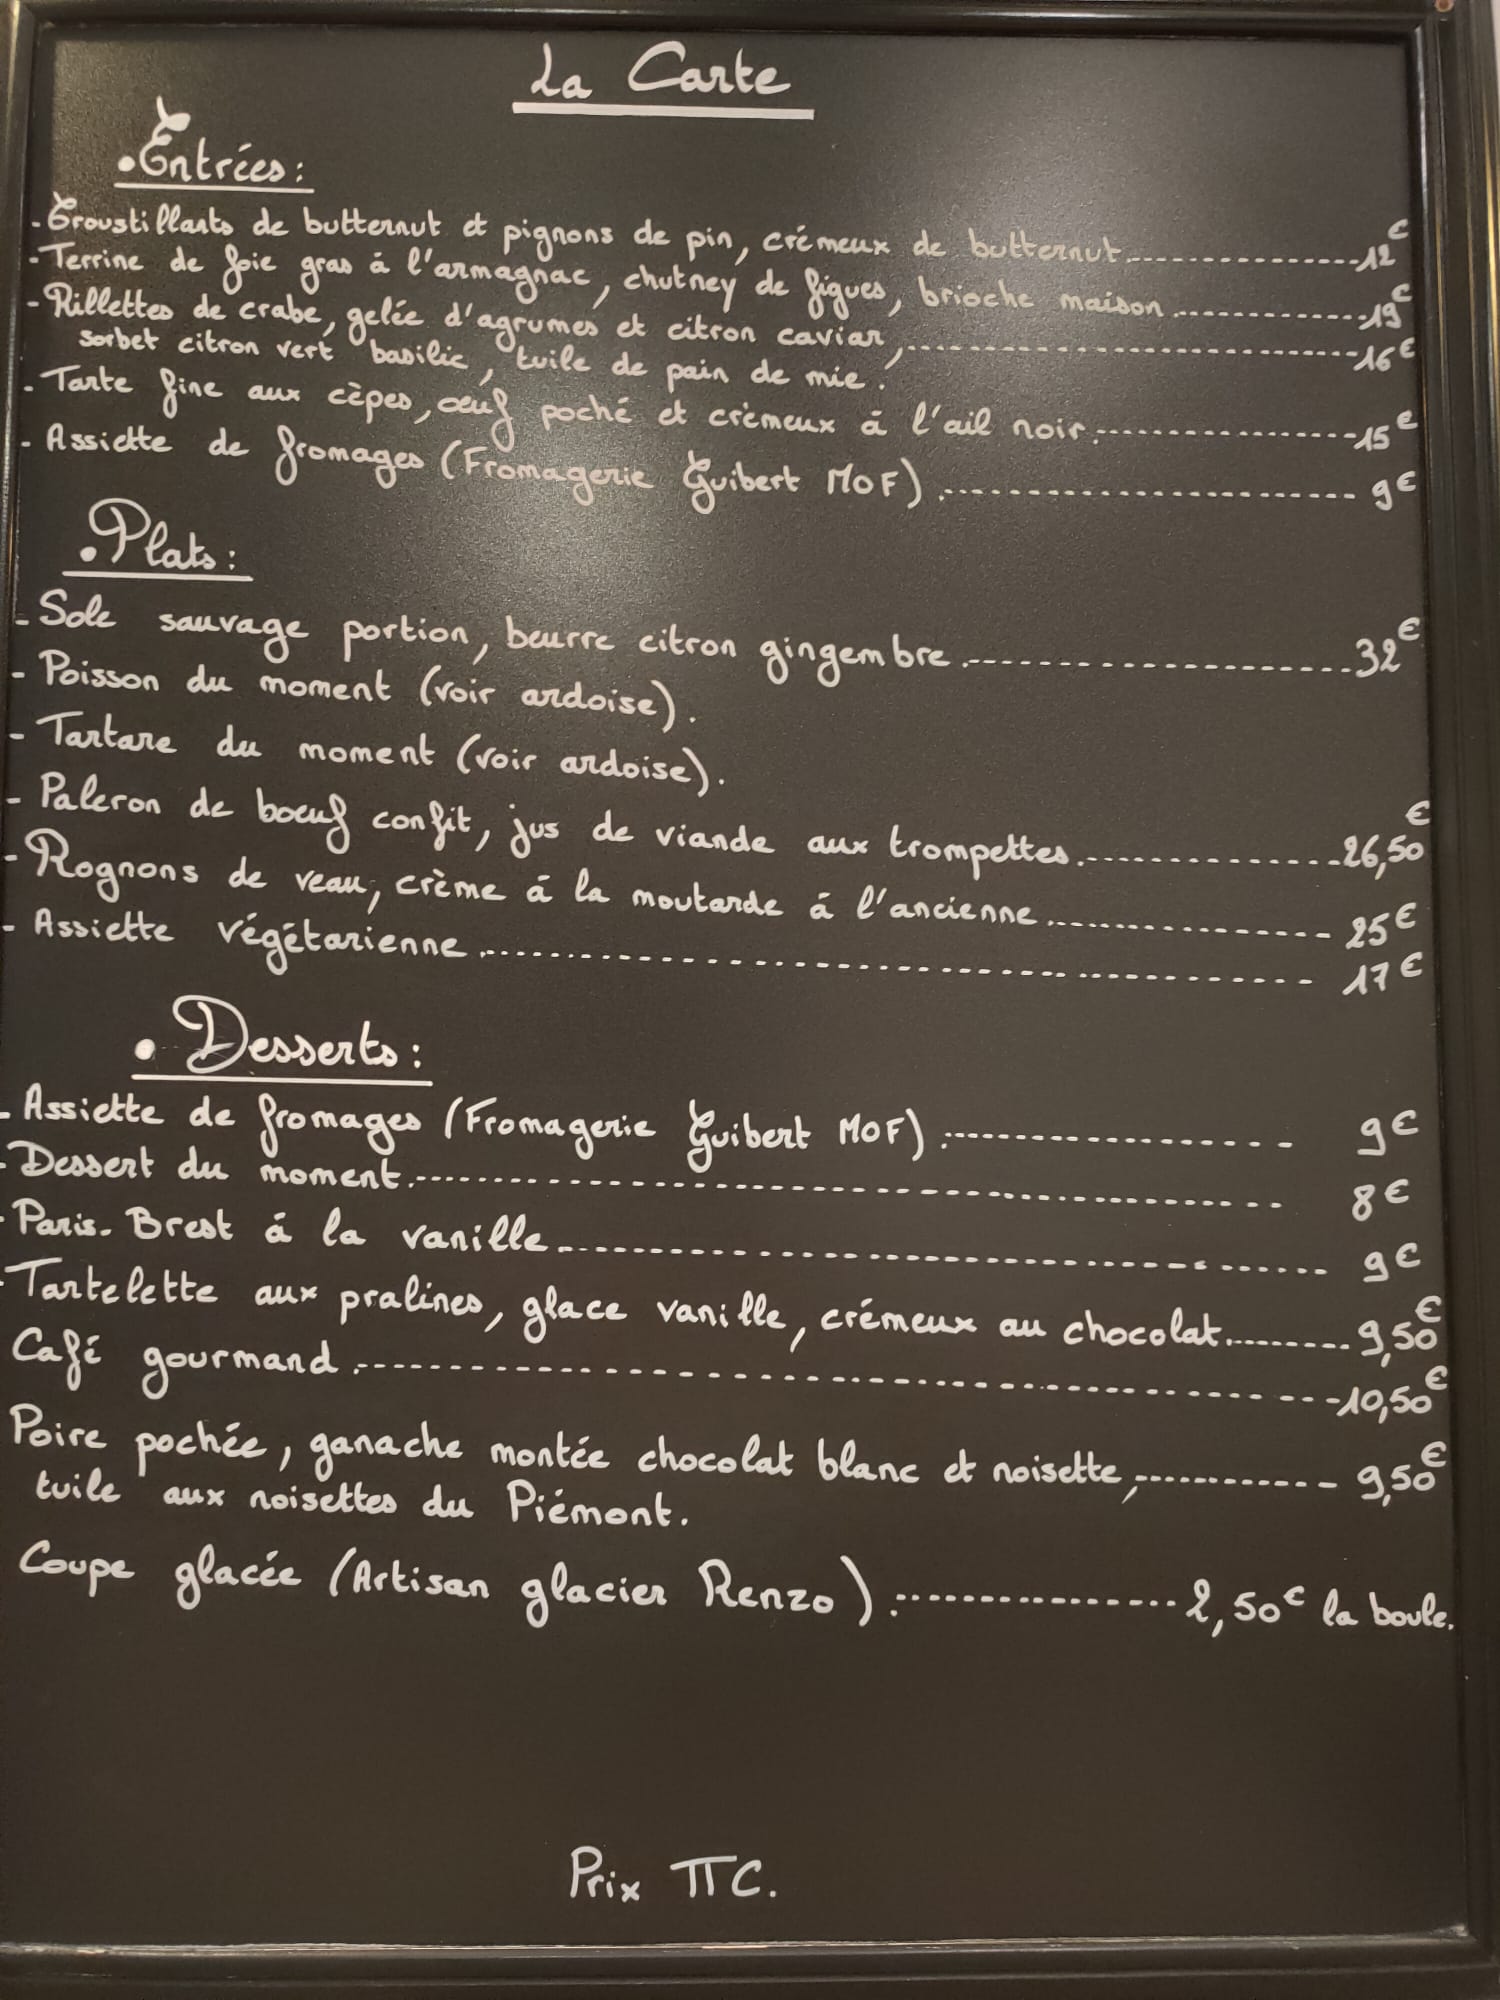 La Carte
• Entrées :
- Croustillants de butternut et pignons de pin, crémeux de butternut.---------------12€
- Terrine de foie gras à l'armagnac, chutney de figues, brioche maison.------------19€
- Rillettes de crabe, gelée d'agrumes et citron caviar,------------------------------16€
sorbet citron vert basilic, tuile de pain de mie.
- Tarte fine aux cèpes, œuf poché et crèmeux à l'ail noir.-----------------15€
- Assiette de fromages (Fromagerie Guibert MOF).------------------------- 9€
• Plats :
- Sole sauvage portion, beurre citron gingembre.-----------------------32€
- Poisson du moment (voir ardoise).
- Tartare du moment (voir ardoise).
- Paleron de bœuf confit, jus de viande aux trompettes.---------------26,50€
- Rognons de veau, crème à la moutarde à l'ancienne.----------------- 25€
- Assiette végétarienne.------------------------------------------------ 17€
• Desserts :
- Assiette de fromages (Fromagerie Guibert MOF).-------------------- 9€
- Dessert du moment.---------------------------------------------------- 8€
- Paris-Brest à la vanille.---------------------------------------------- 9€
- Tartelette aux pralines, glace vanille, crémeux au chocolat.--------9,50€
Café gourmand.-------------------------------------------------------10,50€
Poire pochée, ganache montée chocolat blanc et noisette,------------ 9,50€
tuile aux noisettes du Piémont.
Coupe glacée (Artisan glacier Renzo).-----------------2,50€ la boule.
Prix TTC.